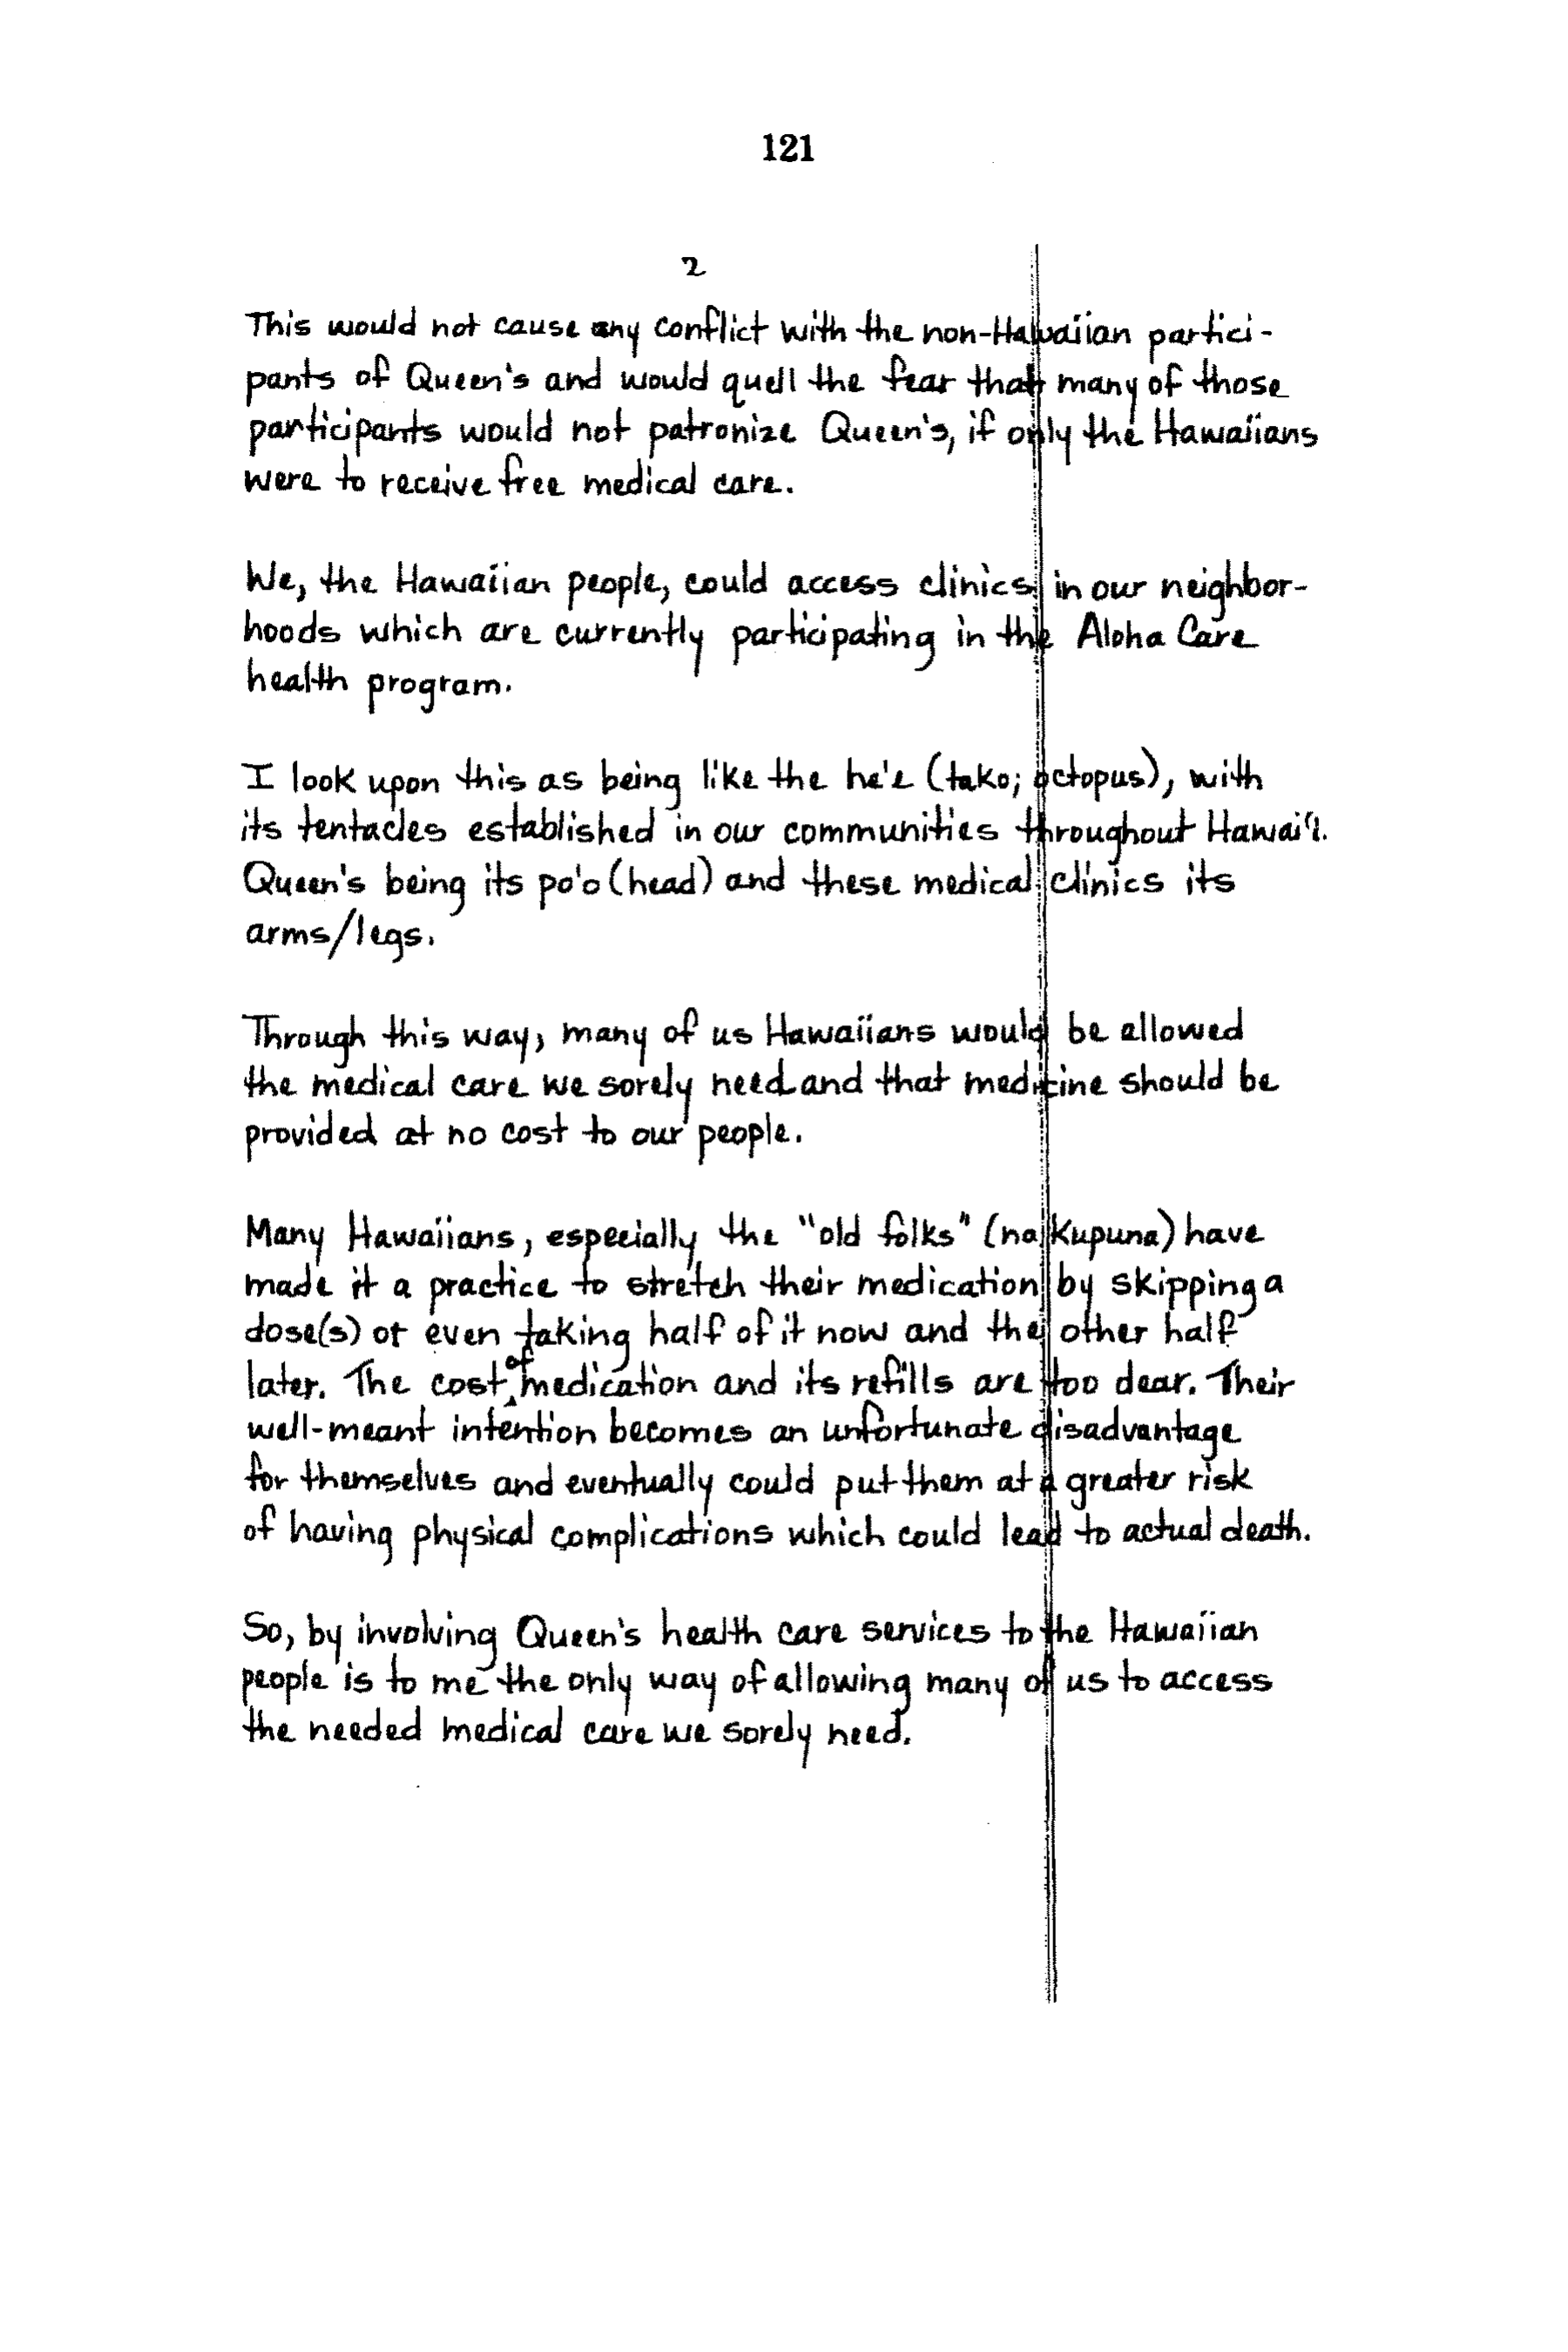 121
2
This would not cause any conflict with the non-Hawaiian partici-
pants of Queen's and would quell the fear that many of those
participants would not patronize Queen's, if only the Hawaiians
were to receive free medical care.
We, the Hawaiian people, could access clinics in our neighbor-
hoods which are currently participating in the Aloha Care
health program.
I look upon this as being like the he'e (tako; octopus), with
its tentacles established in our communities throughout Hawai'i.
Queen's being its po'o (head) and these medical clinics its
arms/legs.
Through this way, many of us Hawaiians would be allowed
the medical care we sorely need and that medicine should be
provided at no cost to our people.
Many Hawaiians, especially the "old folks" (na Kupuna) have
made it a practice to stretch their medication by skipping a
dose(s) or even taking half of it now and the other half
later. The cost of medication and its refills are too dear. Their
well-meant intention becomes an unfortunate disadvantage
for themselves and eventually could put them at a greater risk
of having physical complications which could lead to actual death.
So, by involving Queen's health care services to the Hawaiian
people is to me the only way of allowing many of us to access
the needed medical care we sorely need.